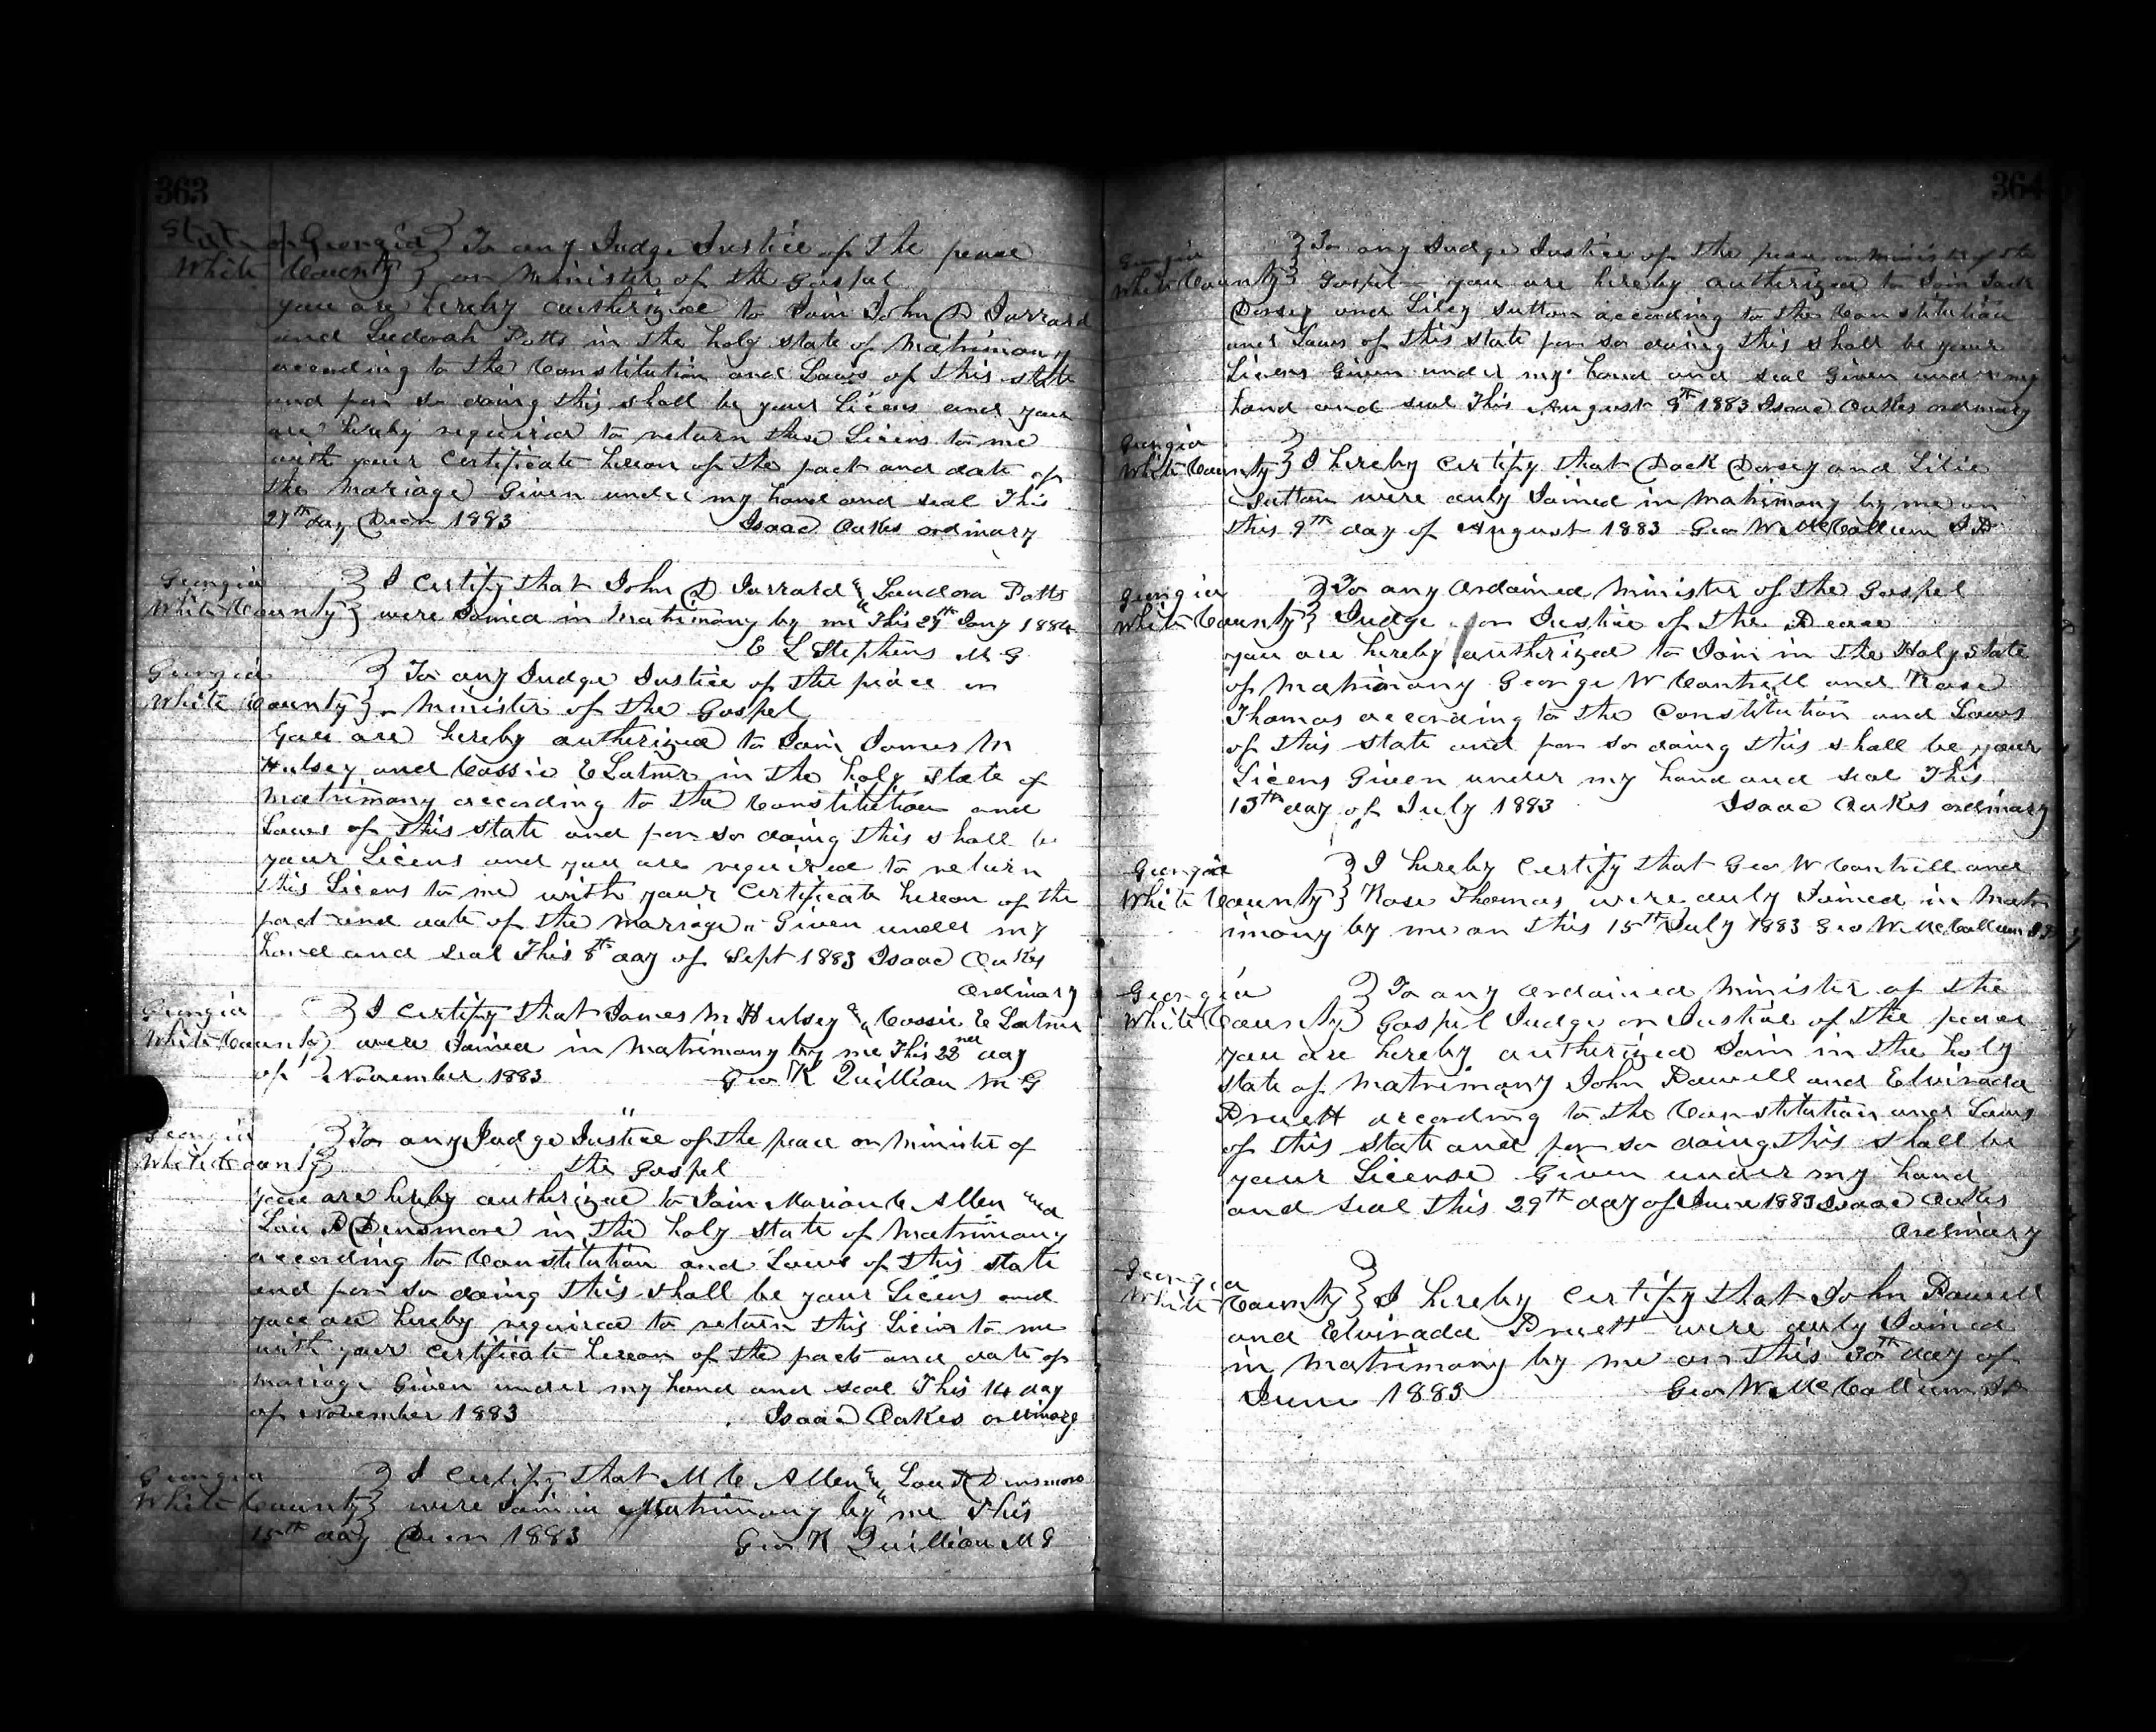 363
State of Georgia } To any Judge Justice of the peace
White County } or Minister of the Gospel
you are hereby autherized to Join John D Jarrard
and Ludorah Potts in the holy state of Matrimony
according to the Constitution and Laws of this state
and for so doing this shall be your Licens and you
are hereby required to return these Licens to me
with your Certificate hereon of the fact and date of
the Mariage Given under my hand and seal This
27th day Decr 1883 Isaac Oakes ordinary
Georgia } I Certify that John D Jarrard & Laudora Potts
White County } were Joined in Matrimony by me This 29th Jany 1884
E L Stephens M G
Georgia } To any Judge Justice of the peace or
White County } Minister of the Gospel
You are hereby autherized to Join James M
Hulsey and Cassie E Latmr in the holy state of
matrimony according to the Constitution and
Laws of this state and for so doing this shall be
your Licens and you are required to return
this Licens to me with your Certificate hereon of the
fact and date of the marriage Given under my
hand and seal This 8th day of Sept 1883 Isaac Oakes
Ordinary
Georgia } I Certify that James M Hulsey & Cassie E Latmr
White County } were Joined in Matrimony by me This 22nd day
of November 1883 Geo K Quillian M G
Georgia } To any Judge Justice of the peace or Ministe of
White County } the Gospel
you are hereby autherized to Join Marion C Allen and
Lou R Densmore in the holy state of Matrimony
according to Constitution and Laws of this state
and for so doing this shall be your Licens and
you are hereby required to return this Licens to me
with your Certificate hereon of the facts and date of
mariage Given under my hand and seal This 14 day
of November 1883 Isaac Oakes ordinary
Georgia } I Certify that M C Allen & Lou R Densmore
White County } were Join in Matrimony by me This
15th day Decr 1883 Geo K Quillian M G
364
Georgia } To any Judge Justice of the peace or Minister of the
White County } Gospel you are hereby autherized to Join Jack
Dorsey and Liley Sutton according to the Constitution
and Laws of this state for so doing this shall be your
Licens Given under my hand and seal Given under my
hand and seal This August 9th 1883 Isaac Oakes ordinary
Georgia
White County } I hereby Certify that Dock Dorsey and Lilie
Sutton were duly Joined in Matrimony by me on
this 9th day of August 1883 Geo W McCollum J P
Georgia } To any Ordained Minister of the Gospel
White County } Judge or Justice of the Peace
you are hereby autherized to Join in the Holy state
of Matrimony George W Cantrell and Rose
Thomas according to the Constitution and Laws
of this state and for so doing this shall be your
Licens Given under my hand and seal This
13th day of July 1883 Isaac Oakes ordinary
Georgia } I hereby Certify that Geo W Cantrell and
White County } Rose Thomas were duly Joined in Matr
imony by me on this 15th July 1883 Geo W McCollum J P
Georgia } To any ordained Minister of the
White County } Gospel Judge or Justice of the peace
you are hereby autherized Join in the holy
state of Matrimony John Powell and Elvirada
Pruett according to the Constitution and Laws
of this State and for so doing this shall be
your License Given under my hand
and seal this 29th day of June 1883 Isaac Oakes
Ordinary
Georgia
White County } I hereby Certify that John Powell
and Elvirada Pruett were duly Joined
in Matrimony by me on this 30th day of
June 1883 Geo W McCollum J P